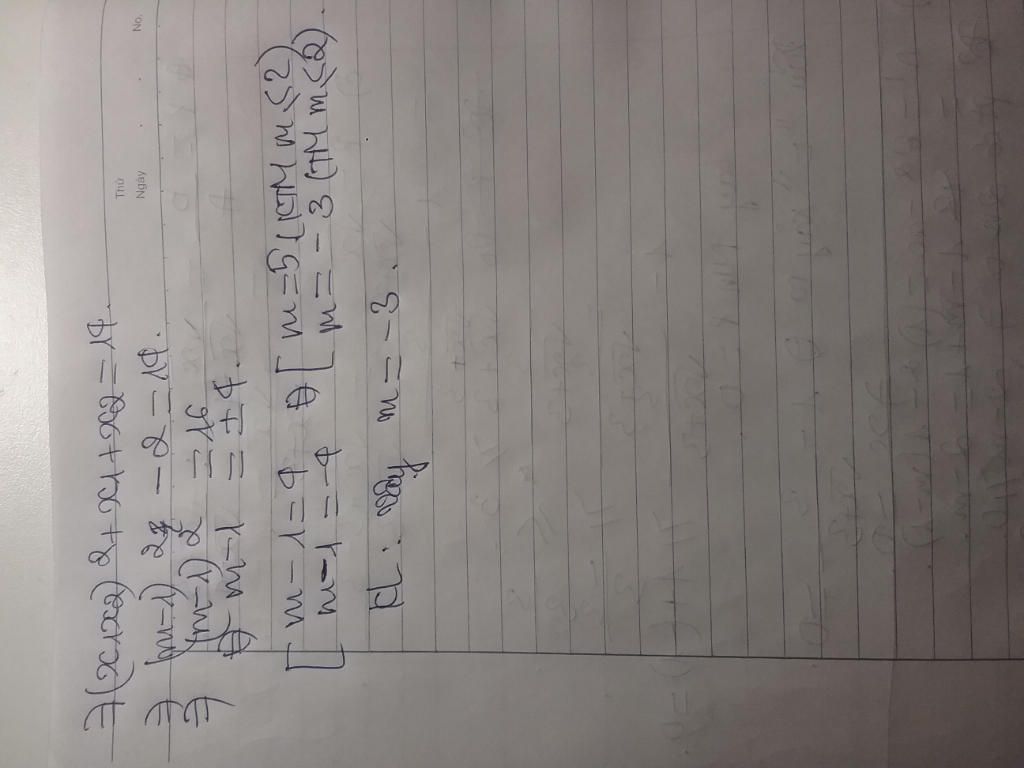 Thứ
Ngày
No.
⇒ (x1x2)² + x1 + x2 = 14.
⇒ (m-1)² - 2 = 14.
⇒ (m-1)² = 16
⇔ m-1 = ±4.
[ m-1 = 4 ⇔ [ m = 5 (KTM m<2)
m-1 = -4 m = -3 (TM m<2).
KL: vậy m = -3.